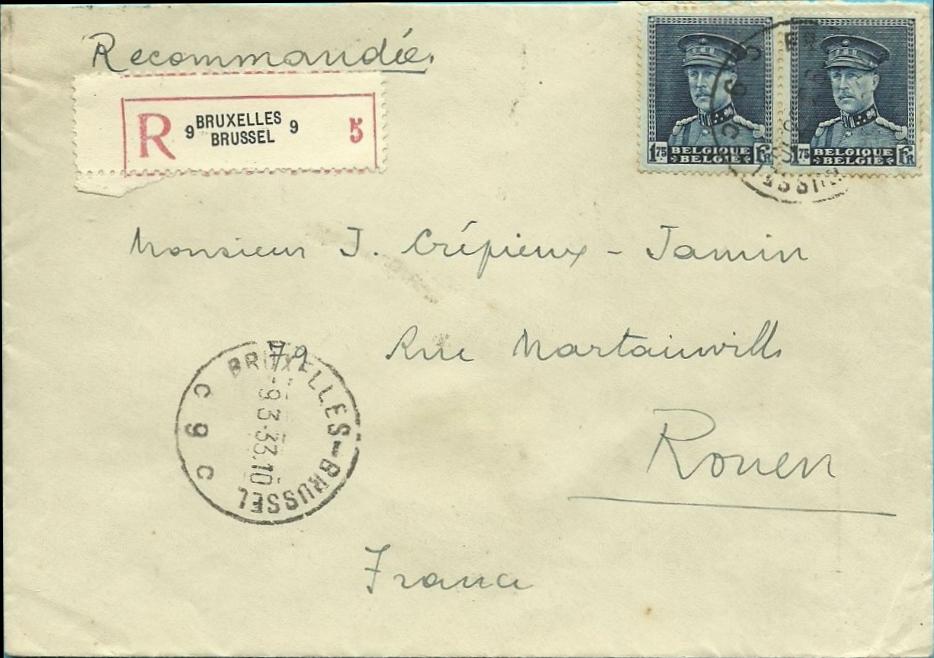 Recommandée
R 9 BRUXELLES 9 5
BRUSSEL
1.75 BELGIQUE FR
BELGIË
1.75 BELGIQUE FR
BELGIË
Monsieur J. Crépieux-Jamin
79 Rue Martainville
Rouen
France
BRUXELLES-BRUSSEL
-9.3-33.10
C 9 C